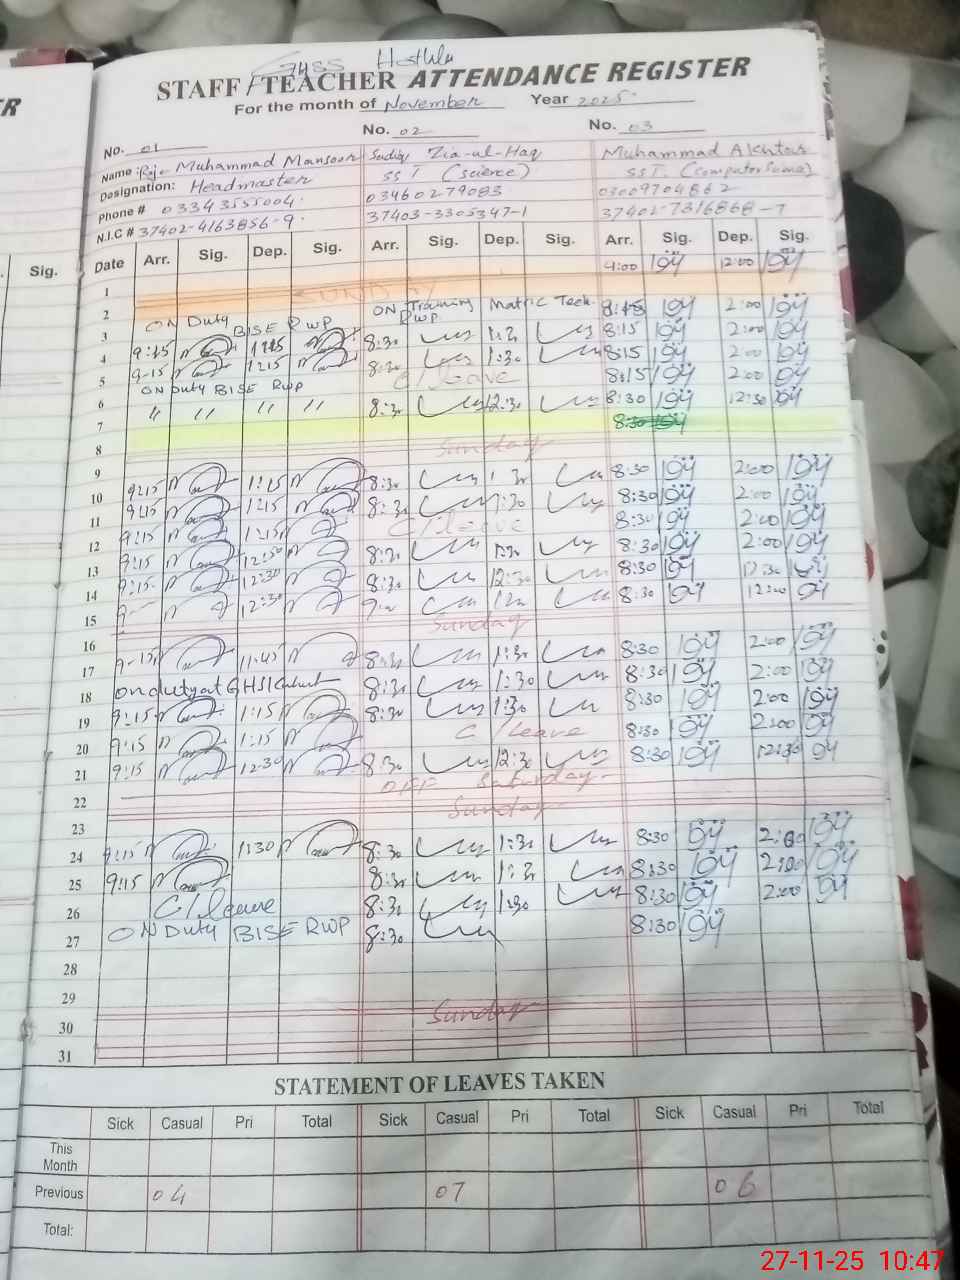 GHSS Hothla
STAFF / TEACHER ATTENDANCE REGISTER
For the month of November Year 2025
No. 01 No. 02 No. 03
Name: Raja Muhammad Mansoor Zia-ul-Haq Muhammad Akhtar
Designation: Headmaster SST (science) SST. (Computer Science)
Phone # 03343555004 03460279083 03009704862
N.I.C # 37402-4163856-9 37403-3305347-1 37402-7316868-7
Sig. Date Arr. Sig. Dep. Sig. Arr. Sig. Dep. Sig. Arr. Sig. Dep. Sig.
1 4:00 12:00
2 SUNDAY
3 ON Duty BISE RWP ON Training Matric Tech. RWP. 8:15 2:00
4 9:15 1:15 8:30 1:30 8:15 2:00
5 9-15 1:15 8:30 1:30 8:15 2:00
6 ON Duty BISE RWP C/leave 8:15 2:00
7 〃 〃 〃 〃 8:30 12:30 8:30 12:30
8 8:30
9 Sunday
10 9:15 1:15 8:30 1:30 8:30 2:00
11 9:15 1:15 8:30 1:30 8:30 2:00
12 9:15 1:15 C/leave 8:30 2:00
13 9:15 12:50 8:30 1:30 8:30 2:00
14 9:15 12:30 8:30 12:30 8:30 12:30
15 12:30 8:30 12:00
16 Sunday
17 9-15 11:45 8:30 1:30 8:30 2:00
18 on duty at GHSI 8:30 1:30 8:30 2:00
19 9:15 1:15 8:30 1:30 8:30 2:00
20 9:15 1:15 C/leave 8:30 2:00
21 9:15 12:30 8:30 12:30 8:30 12:30
22 OFF Saturday
23 Sunday
24 9:15 1:30 8:30 1:30 8:30 2:00
25 9:15 8:30 1:30 8:30 2:00
26 C/leave 8:30 1:30 8:30 2:00
27 ON Duty BISE RWP 8:30 8:30
28
29
30 Sunday
31
STATEMENT OF LEAVES TAKEN
Sick Casual Pri Total Sick Casual Pri Total Sick Casual Pri Total
This Month
Previous 04 07 06
Total:
27-11-25 10:47